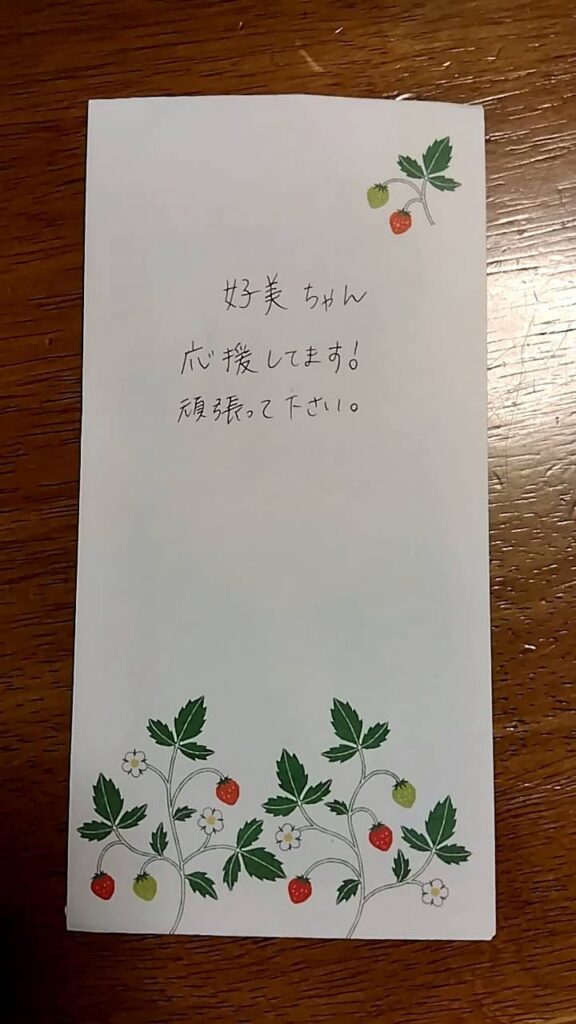 好美ちゃん
応援してます!
頑張って下さい。